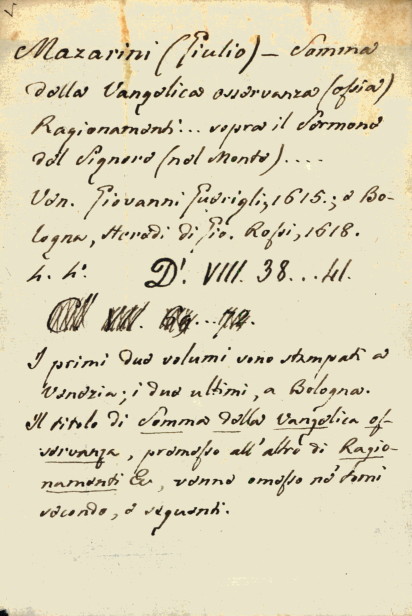 Mazarini (Giulio) – Somma
della Vangelica osservanza (ossia)
Ragionamenti... sopra il Sermone
del Signore (nel Monte)....
Ven. Giovanni Guerigli, 1615.; e Bo-
logna, Heredi di Gio. Rossi, 1618.
4. h.' D.' VIII. 38...41.
I primi due volumi sono stampati a
Venezia; i due ultimi, a Bologna.
Il titolo di Somma della Vangelica os-
servanza, premesso all'altro di Ragio-
namenti &c, venne omesso ne' tomi
secondo, e seguenti.